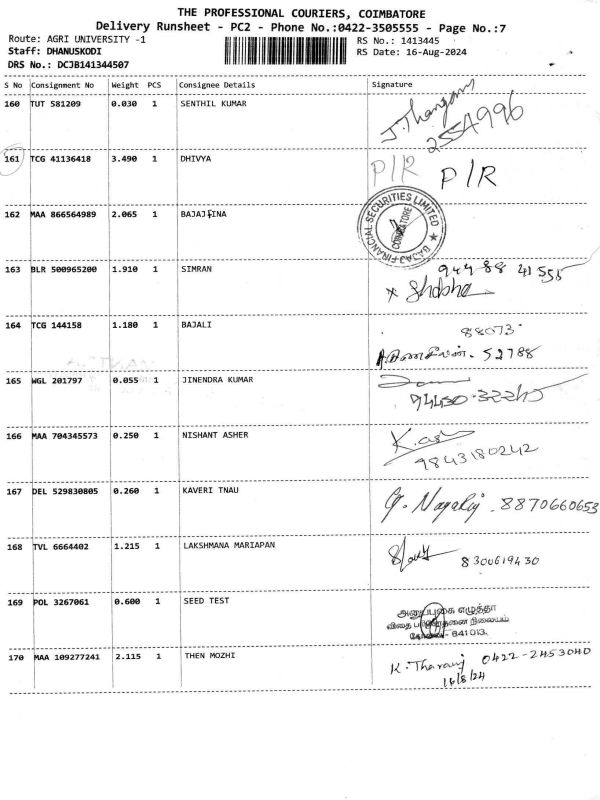 THE PROFESSIONAL COURIERS, COIMBATORE
Delivery Runsheet - PC2 - Phone No.:0422-3505555 - Page No.:7
Route: AGRI UNIVERSITY -1
RS No.: 1413445
Staff: DHANUSKODI
RS Date: 16-Aug-2024
DRS No.: DCJB141344507
S No Consignment No Weight PCS Consignee Details Signature
160 TUT 581209 0.030 1 SENTHIL KUMAR J. Thangam
255A996
161 TCG 41136418 3.490 1 DHIVYA P/R P/R
162 MAA 866564989 2.065 1 BAJAJFINA
BAJAJ FINANCIAL SECURITIES LIMITED
COIMBATORE
163 BLR 500965200 1.910 1 SIMRAN 944 88 41555
Shobha
164 TCG 144158 1.180 1 BAJALI 88073
52788
165 WGL 201797 0.055 1 JINENDRA KUMAR
166 MAA 704345573 0.250 1 NISHANT ASHER K. ash
9843180242
167 DEL 529830805 0.260 1 KAVERI TNAU G. Nagaraj . 8870660653
168 TVL 6664402 1.215 1 LAKSHMANA MARIAPAN
8300619430
169 POL 3267061 0.600 1 SEED TEST
அனுப்புகை எழுத்தர்
விதை பரிசோதனை நிலையம்
கோவை - 641 013.
170 MAA 109277241 2.115 1 THEN MOZHI K. Tharanj 0422-2453040
16/8/24